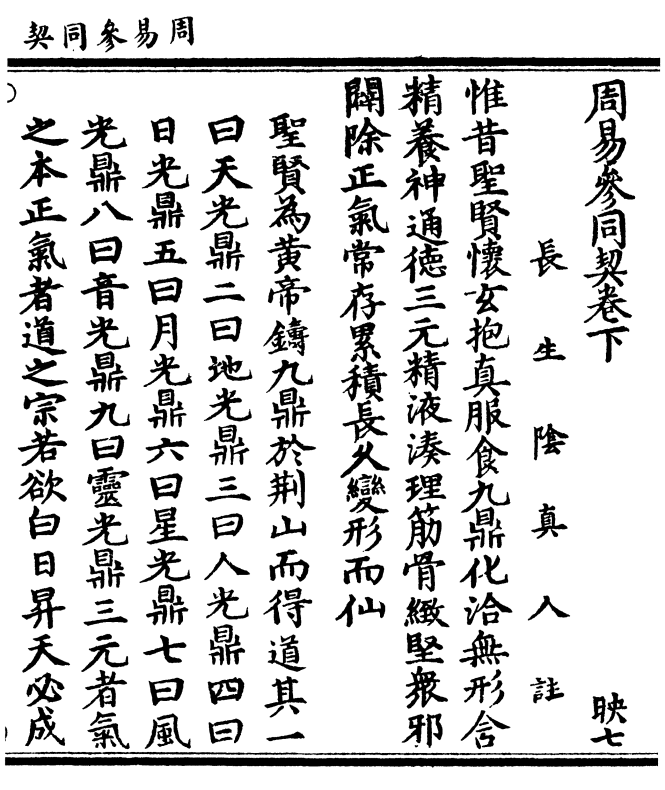 周易參同契
周易參同契卷下
映七
長生陰真人註
惟昔聖賢懷玄抱真服食九鼎化洽無形含
精養神通德三元精液湊理筋骨緻堅衆邪
闢除正氣常存累積長久變形而仙
聖賢為黄帝鑄九鼎於荆山而得道其一
曰天光鼎二曰地光鼎三曰人光鼎四曰
日光鼎五曰月光鼎六曰星光鼎七曰風
光鼎八曰音光鼎九曰靈光鼎三元者氣
之本正氣者道之宗若欲白日昇天必成